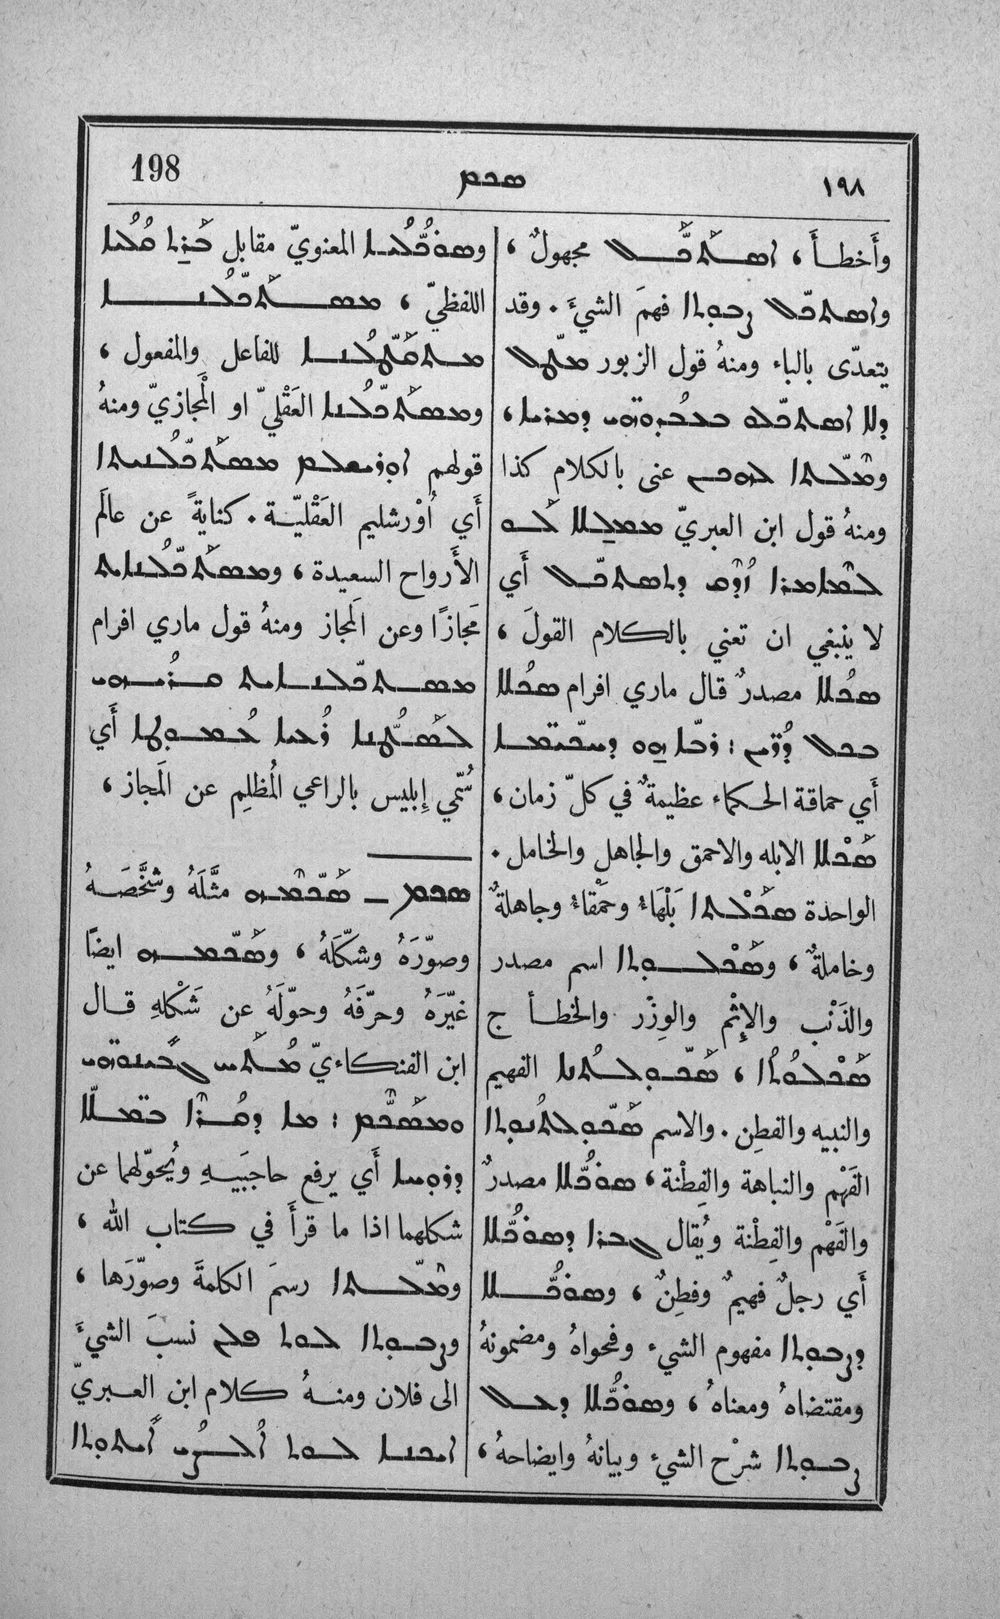 198
ܣܟܡ
١٩٨
وأَخطأَ ، ܐܣܬܰܟܰܠ مجهولٌ ،
ܘܐܣܬܟܠ ܨܒܘܬܐ فهمَ الشيءَ . وقد
يتعدّى بالباء ومنهُ قول الزبور ܡܛܠ
ܕܠܐ ܐܣܬܟܠܘ ܒܥܒܕܘܗܝ ܕܡܪܝܐ ،
ܘܡܠܬܐ ܠܗܟܢ عنى بالكلام كذا
ومنهُ قول ابن العبريّ ܠܗ
ܠܡܐܡܪܐ ܐܳܕܶܫ ܕܬܣܬܟܠ أَي
لا ينبغي ان تعني بالكلام القولَ ،
ܣܟܠܐ مصدرٌ قال ماري افرام ܣܟܠܐ
ܒܟܠ ܕܪܝܢ : ܪܒܐ ܗܘ ܕܚܟܝܡܐ
أَي حماقة الحكماء عظيمةٌ في كلّ زمان ،
ܣܰܟܠܐ الابله والاحمق والجاهل والخامل .
الواحدة ܣܰܟܠܬܐ بَلْهَاءُ وحَمْقاءُ وجاهلةٌ
وخاملةٌ ، ܘܣܰܟܠܘܬܐ اسم مصدر
والذَنْب والإِثْم والوِزْر والخطأ ج
ܣܰܟܠܘܳܬܐ ، ܣܰܟܘܠܬܳܢܐ الفهيم
والنبيه والفطِن . والاسم ܣܰܟܘܠܬܳܢܘܬܐ
الفَهْم والنباهة والفِطْنة ، ܣܘܟܳܠܐ مصدرٌ
والفَهْم والفِطْنة ويُقال ܓܒܪܐ ܕܣܘܟܳܠܐ
أَي رجلٌ فهيمٌ وفطِنٌ ، ܘܣܘܟܳܠܐ
ܕܨܒܘܬܐ مفهوم الشيء وفحواهُ ومضمونهُ
ومقتضاهُ ومعناهُ ، ܘܣܘܟܳܠܐ ܕܟܠ
ܨܒܘܬܐ شرْح الشيء وبيانهُ وايضاحهُ ،
ܘܣܘܟܳܠܝܐ المعنويّ مقابل ܒܰܪܬ ܩܳܠܝܐ
اللفظيّ ، ܡܣܬܰܟܠܳܢܐ
ܡܬܩܰܛܠܳܢܐ للفاعل والمفعول ،
ܘܡܣܬܰܟܠܳܢܐ العَقْليّ او الْمجازيّ ومنهُ
قولهم ܐܘܪܫܠܡ ܡܣܬܰܟܠܳܢܝܬܐ
أَي اُوْرشليم العَقْليّة . كنايةً عن عالَم
الأَرواح السعيدة ، ܘܡܣܬܰܟܠܳܢܐܝܬ
مَجازًا وعن المَجاز ومنهُ قول ماري افرام
ܡܣܬܟܠܢܐܝܬ ܩܪܳܝܘܗܝ
ܠܣܳܛܢܐ ܪܳܥܝܐ ܥܰܡܘܛܐ أَي
سُمّي إِبليس بالراعي المُظلِم عن المَجاز ،
ܣܟܡ ــ ܣܰܟܡܗ مثَّلَهُ وشخَّصَهُ
وصوّرَهُ وشكّلَهُ ، ܘܣܰܟܡܗ ايضًا
غيّرَهُ وحرّفَهُ وحوّلَهُ عن شَكْلهِ قال
ابن الفنكاءيّ ܡܳܬܰܚ ܓܒܝܢܘܗܝ
ܘܡܣܰܟܶܡ : ܡܐ ܕܩܳܪܐ ܒܡܠܐ
ܕܪܘܚܐ أَي يرفع حاجبَيهِ ويُحوّلهما عن
شكلهما اذا ما قرأَ في كتاب الله ،
ܘܡܠܬܐ رسمَ الكلمةَ وصوّرَها ،
ܘܨܒܘܬܐ ܠܘܬ ܦܠܢ نسبَ الشيءَ
الى فلان ومنهُ كلام ابن العبريّ
ܠܘܬ ܐܰܠܳܗܝ